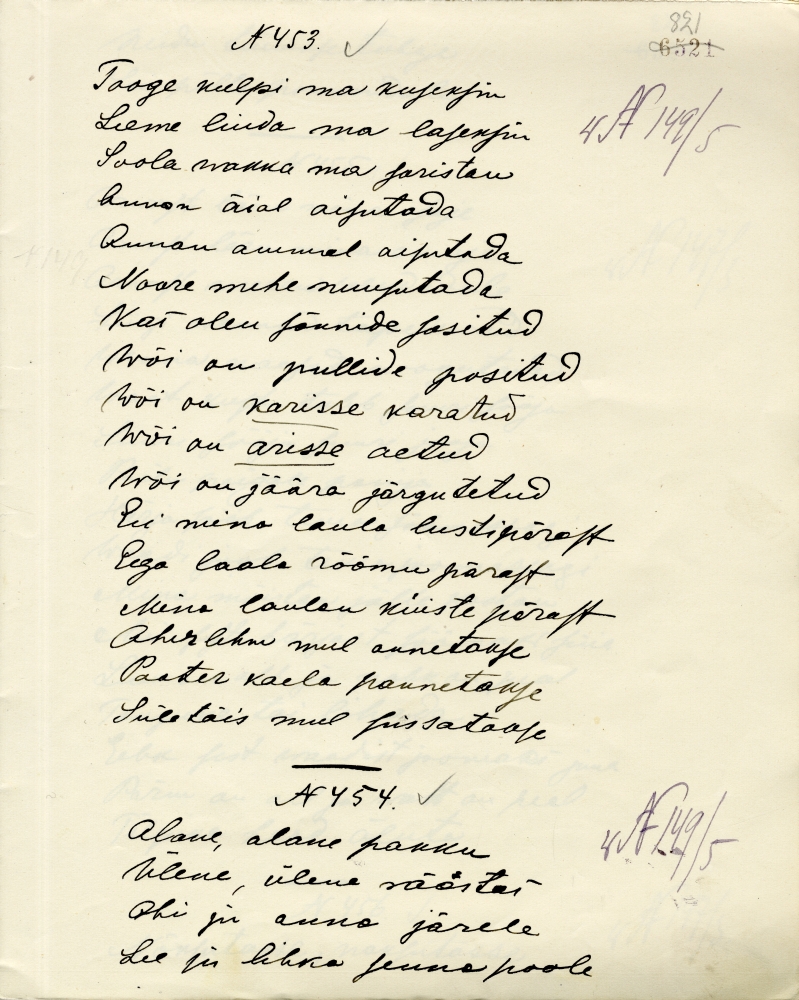 N 453.
821
6521
Tooge kulpi ma kuseksin
Leeme liuda ma laseksin
Soola wakka ma soristan
Annan äial aisutada
Annan ammel aisutada
Noore mehe nuusutada
Kas olen sõnnide sositud
Wõi on pullide positud
Wõi on karisse karatud
Wõi on arisse aetud
Wõi on jäära järgutetud
Eii mina laula lustipärast
Ega laala rõõmu pärast
Mina laulan küiste pärast
Aherlehm mul annetakse
Paater kaela pannetakse
Sületäis mul sissatakse
4 N 149/5
N 454.
Alane, alane pakku
Ülene, ülene räästas
Ahi ju anna järele
Lee ju lihka senna poole
4 N 149/5